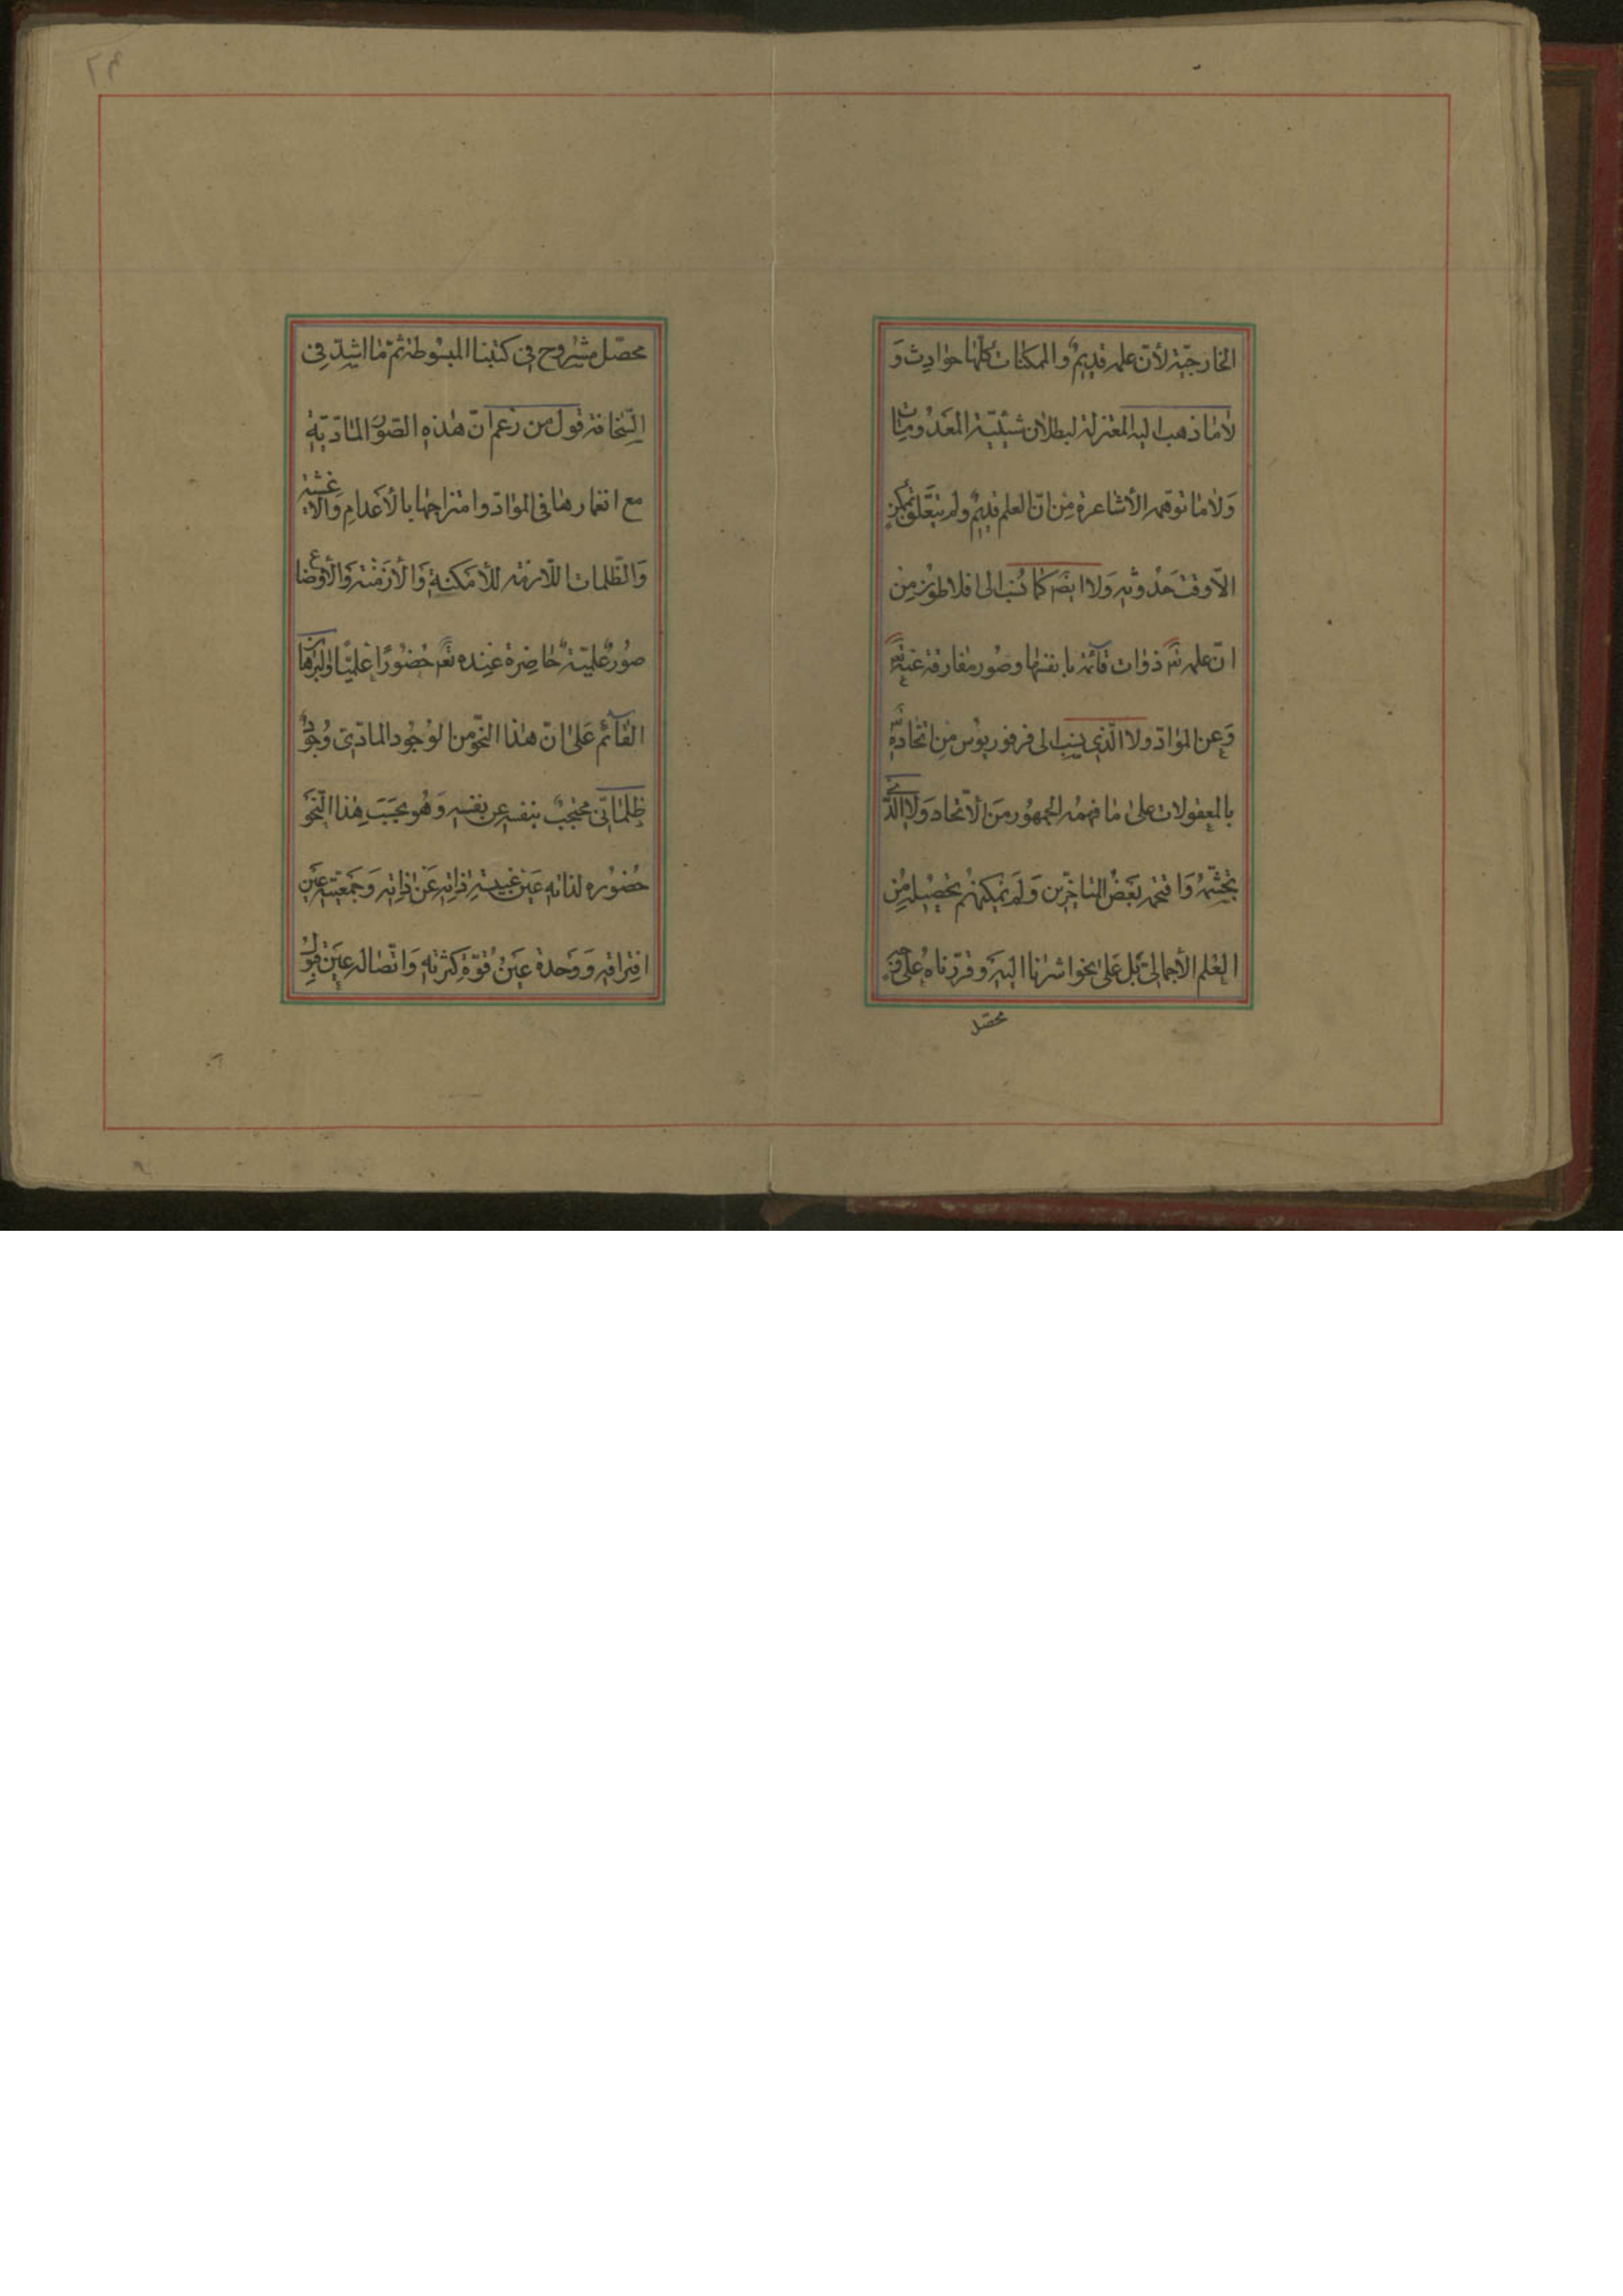 الخارجيّة لأنّ علمه قديمٌ والممكنات كلّها حوادث وَ
لاما ذهب اليه المعتزلة لبطلان شيئيّة المعدُومات
وَلاما توهّمه الأشاعرة مِن انّ العلم قديمٌ ولم يتعلّق بممكنٍ
الّا وقت حَدُوثهِ وَلا ايضًا كما نُسب الى افلاطون مِن
انّ علمه تعَ ذوات قآئمة بانفسها وصُور مفارقة عنه تعَ
وَعن الموادّ ولا الّذي ينسب الى فرفوريوس مِن اتّحاده تعَ
بالمعقولات على ما فهمه الجمهُور مِنَ الأتّحاد وَلا الّذي
تجشّمهُ وَاقتحمه بَعضُ المتاخّرين وَلم يُمكنهُم تحصيله مِن
العلم الأجمالىّ بَل عَلىٰ نحوٍ اشرنا اليه وَقرّرناهُ على وجه
محصّل
محصّل مشروح فى كتبنا المبسُوطة ثمّ ما اشدّ فى
السّخافة قول من زعم انّ هٰذه الصّوَر المادّيّة
مع انغمارها فى الموادّ وامتزاجها بالأعدامِ وَالاغشية
وَالظّلمات اللّازمة للأمكنةِ وَالأزمنة وَالأوضاع
صُورٌ علميّة حاضِرة عِنده تعَ حضُورًا علميًّا والبرهان
القآئم عَلىٰ انّ هٰذا النّحو من الوُجُود المادّى وُجودٌ
ظلمانىّ محتجبٌ بنفسهِ عن نفسهِ وَهُو بحَسَبِ هٰذا النّحو
حُضوره لذاته عَين غيبة ذاتِه عَن ذاتِه وَجمعيّته عَين
افتراقه وَوحدة عَينُ قُوّة كثرته وَاتّصاله عين قبول